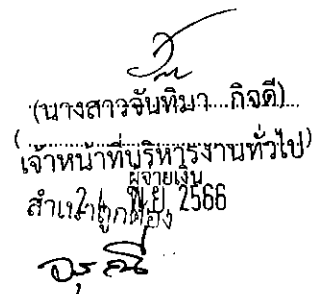 (นางสาวจันทิมา กิจดี)
เจ้าหน้าที่บริหารงานทั่วไป)
ผู้จ่ายเงิน
24 พ.ย. 2566
สำเนาถูกต้อง